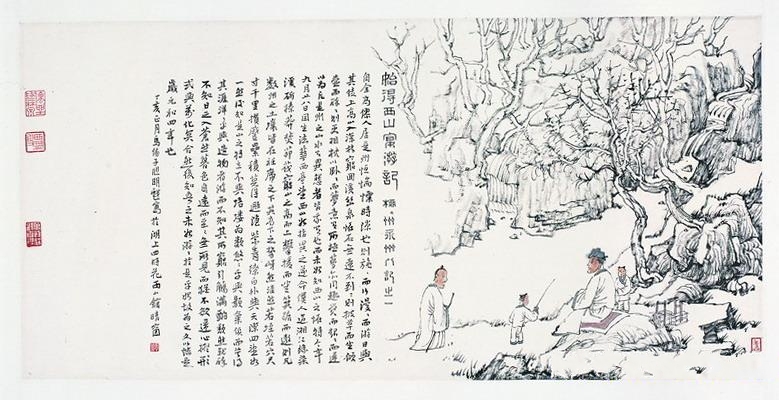 始得西山宴游記 柳州永州八記之一
自余為僇人居是州恒惴慄時隙也則施〻而行漫〻而游日與
其徒上高山入深林窮迴溪幽泉怪石無遠不到〻則披草而坐傾
壺而醉〻則更相枕以卧〻而夢意有所極夢亦同趣覺而起〻而歸
以為凡是州之山水有異態者皆我有也而未始知西山之怪特今年
九月廿八日因坐法華西亭望西山始指異之遂命僕人過湘江緣染
溪斫榛莽焚茅茷窮山之高而上攀援而登箕踞而遨則凡
數州之土壤皆在衽席之下其高下之勢岈然洼然若垤若穴尺
寸千里攢蹙累積莫得遯隱縈青繚白外與天際四望如
一然後知是山之特立不與培塿為類悠〻乎與顥氣俱而莫得
其涯洋〻乎與造物者游而不知其所窮引觴滿酌頹然就醉
不知日之入蒼然暮色自遠而至〻無所見而猶不欲還心凝形
釋與萬化冥合然後知吾之未始游〻於是乎始故為之文以志是
歲元和四年也
丁亥正月 寫於湖上四時花 山館晴窗